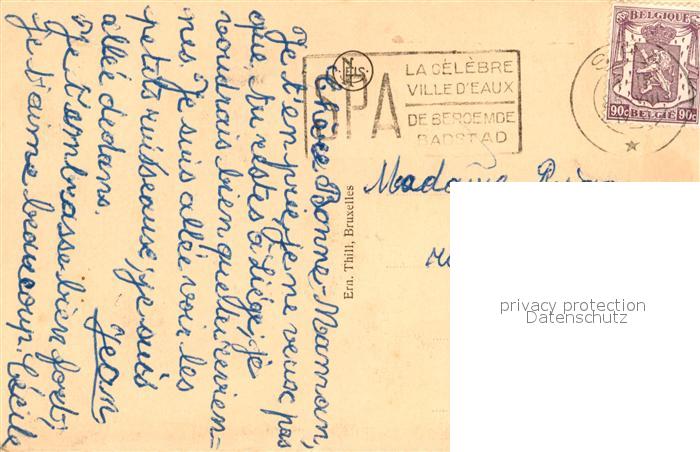 Chère Bonne-Maman,
Je t'en prie, je ne veux pas
que tu restes à Liége, je
voudrais bien que tu revien-
nes. Je suis allée voir les
petits ruisseaux, je suis
allée dedans. Jean
Je t'embrasse bien fort,
Je t'aime beaucoup. Cécile
NELS
SPA
LA CÉLÈBRE
VILLE D'EAUX
DE BEROEMDE
BADSTAD
BELGIQUE
90c BELGIE 90c
Ern. Thill, Bruxelles
Madame
privacy protection
Datenschutz